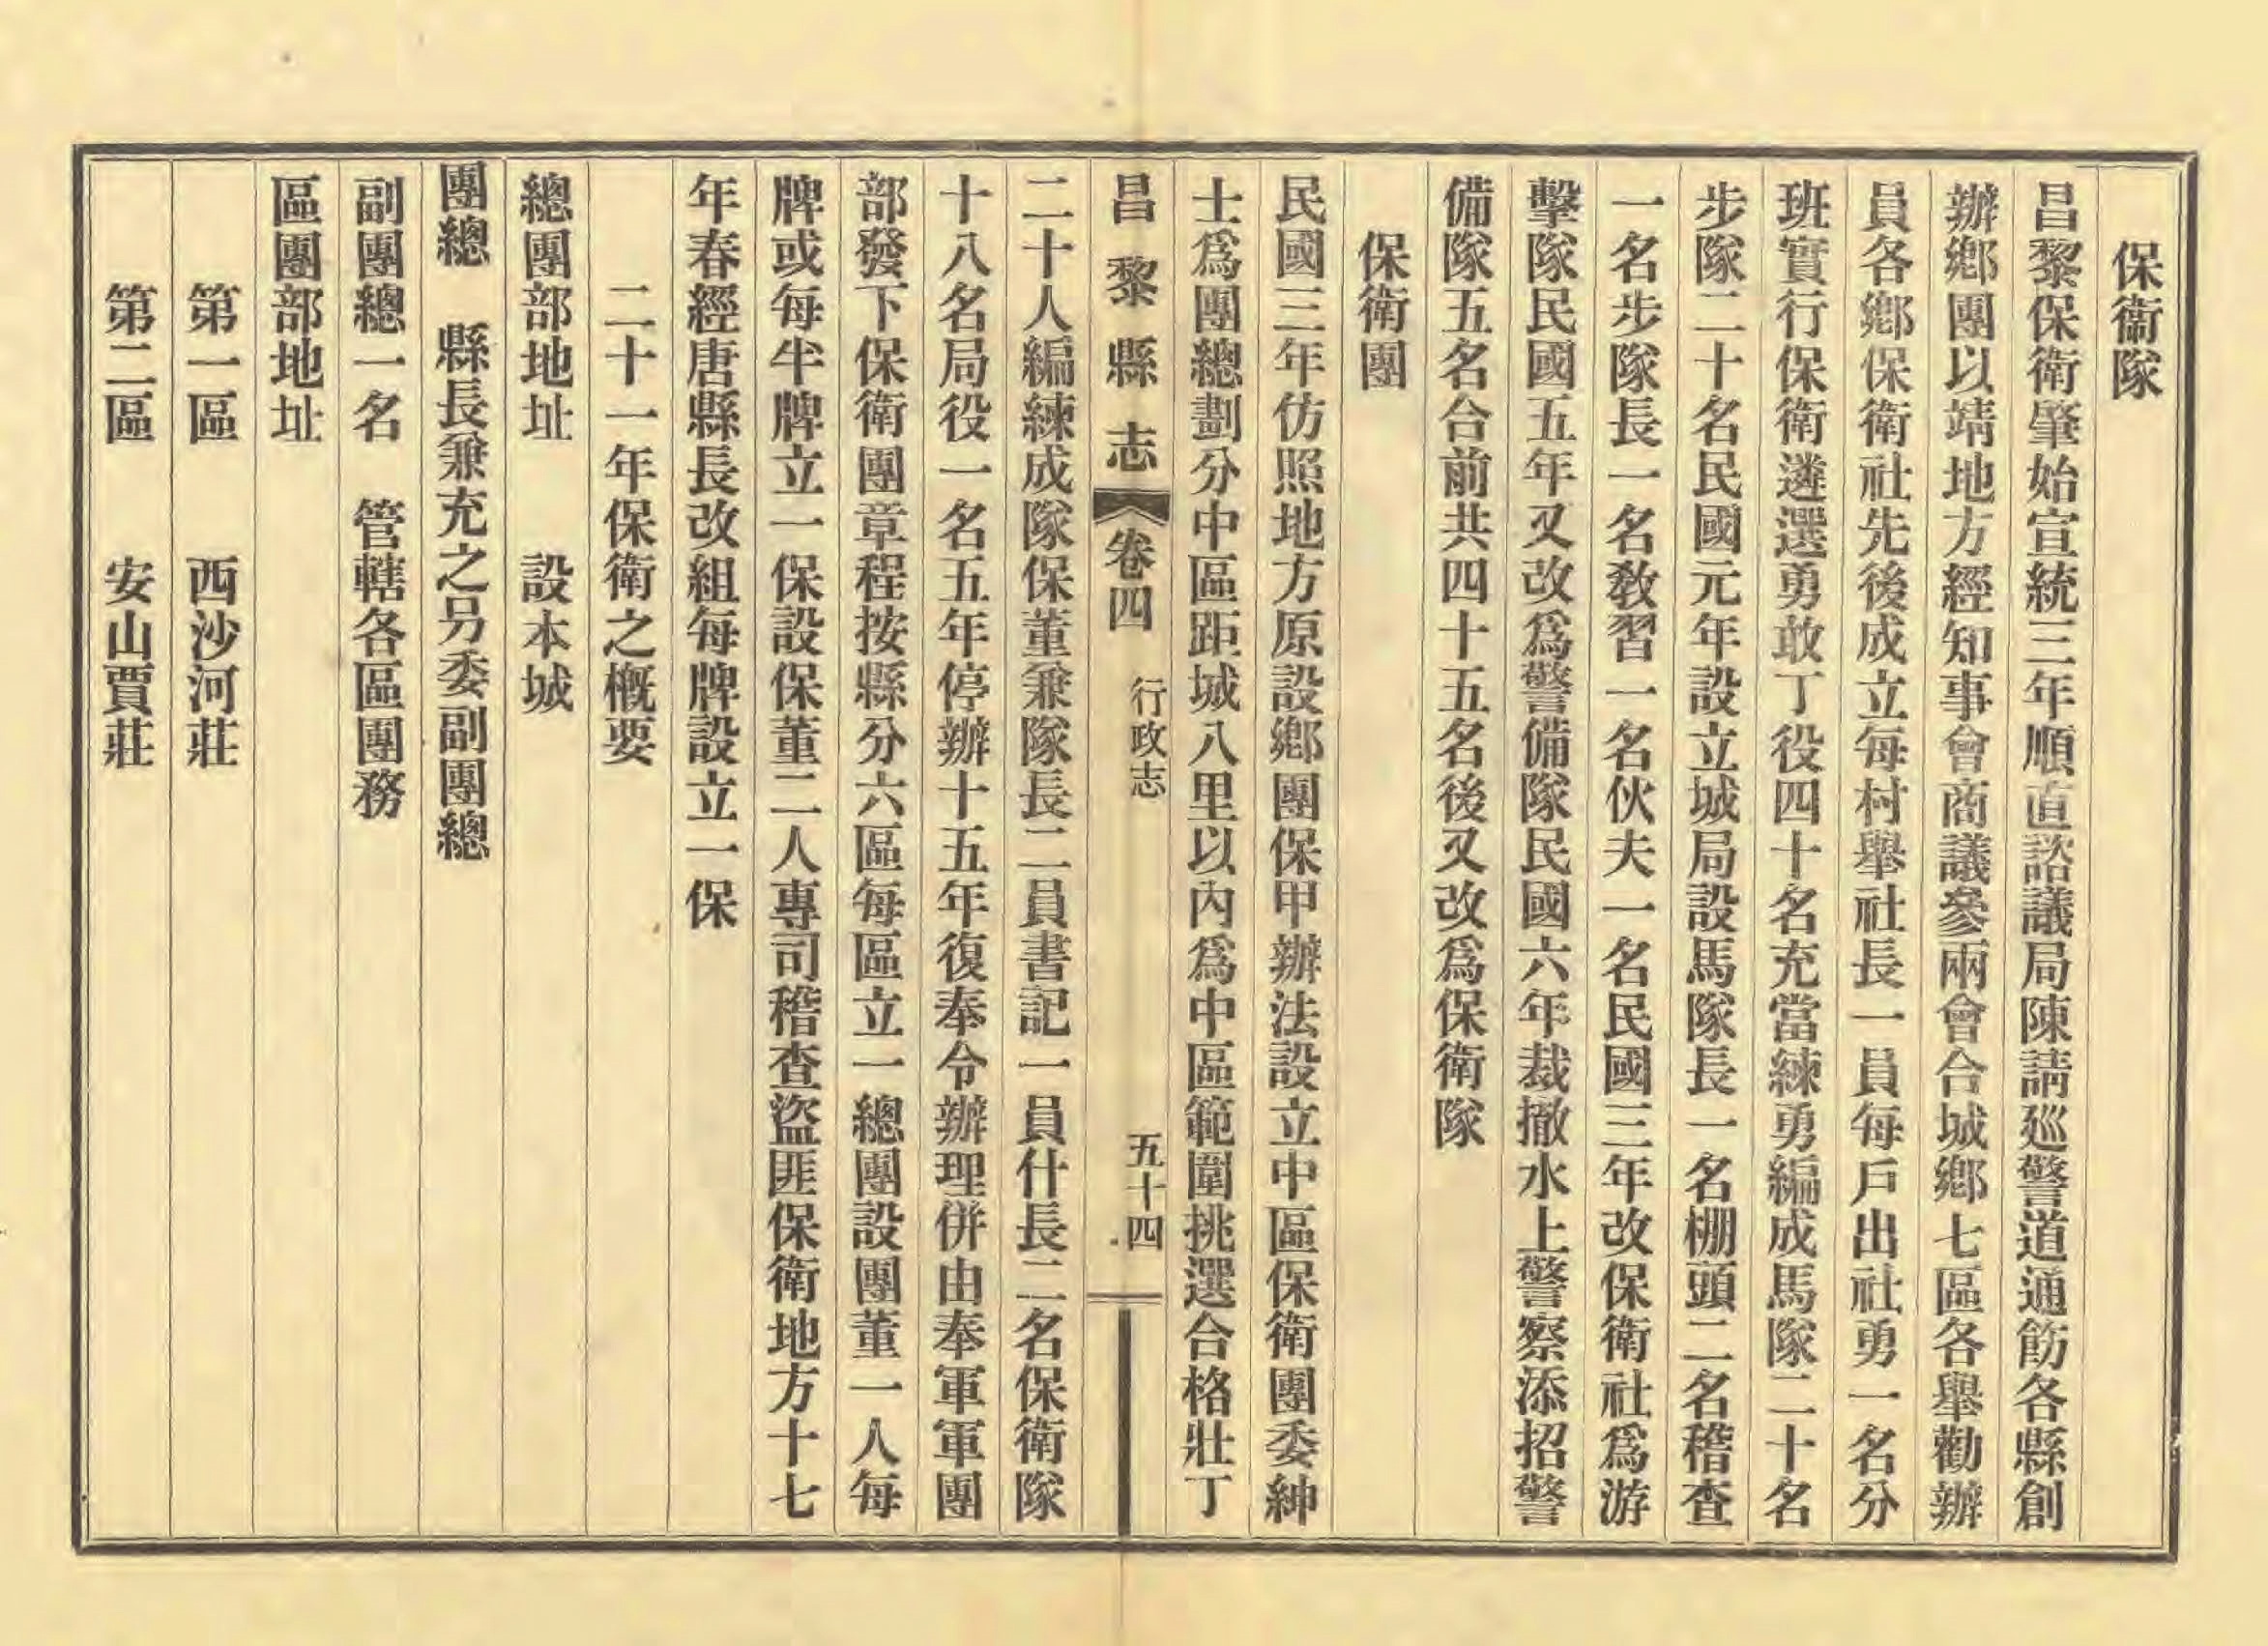 保衞隊
昌黎保衛肇始宣統三年順直諮議局陳請巡警道通飭各縣創
辦鄉團以靖地方經知事會商議參兩會合城鄉七區各舉勸辦
員各鄉保衛社先後成立每村舉社長一員每戶出社勇一名分
班實行保衛遴選勇敢丁役四十名充當練勇編成馬隊二十名
步隊二十名民國元年設立城局設馬隊長一名棚頭二名稽查
一名步隊長一名教習一名伙夫一名民國三年改保衛社爲游
擊隊民國五年又改爲警備隊民國六年裁撤水上警察添招警
備隊五名合前共四十五名後又改爲保衛隊
保衛團
民國三年仿照地方原設鄉團保甲辦法設立中區保衛團委紳
士爲團總劃分中區距城八里以內爲中區範圍挑選合格壯丁
昌黎縣志 卷四 行政志 五十四
二十人編練成隊保董兼隊長二員書記一員什長二名保衛隊
十八名局役一名五年停辦十五年復奉令辦理併由奉軍軍團
部發下保衛團章程按縣分六區每區立一總團設團董一人每
牌或每半牌立一保設保董二人專司稽查盜匪保衛地方十七
年春經唐縣長改組每牌設立一保
二十一年保衛之概要
總團部地址 設本城
團總 縣長兼充之另委副團總
副團總一名 管轄各區團務
區團部地址
第一區 西沙河莊
第二區 安山賈莊